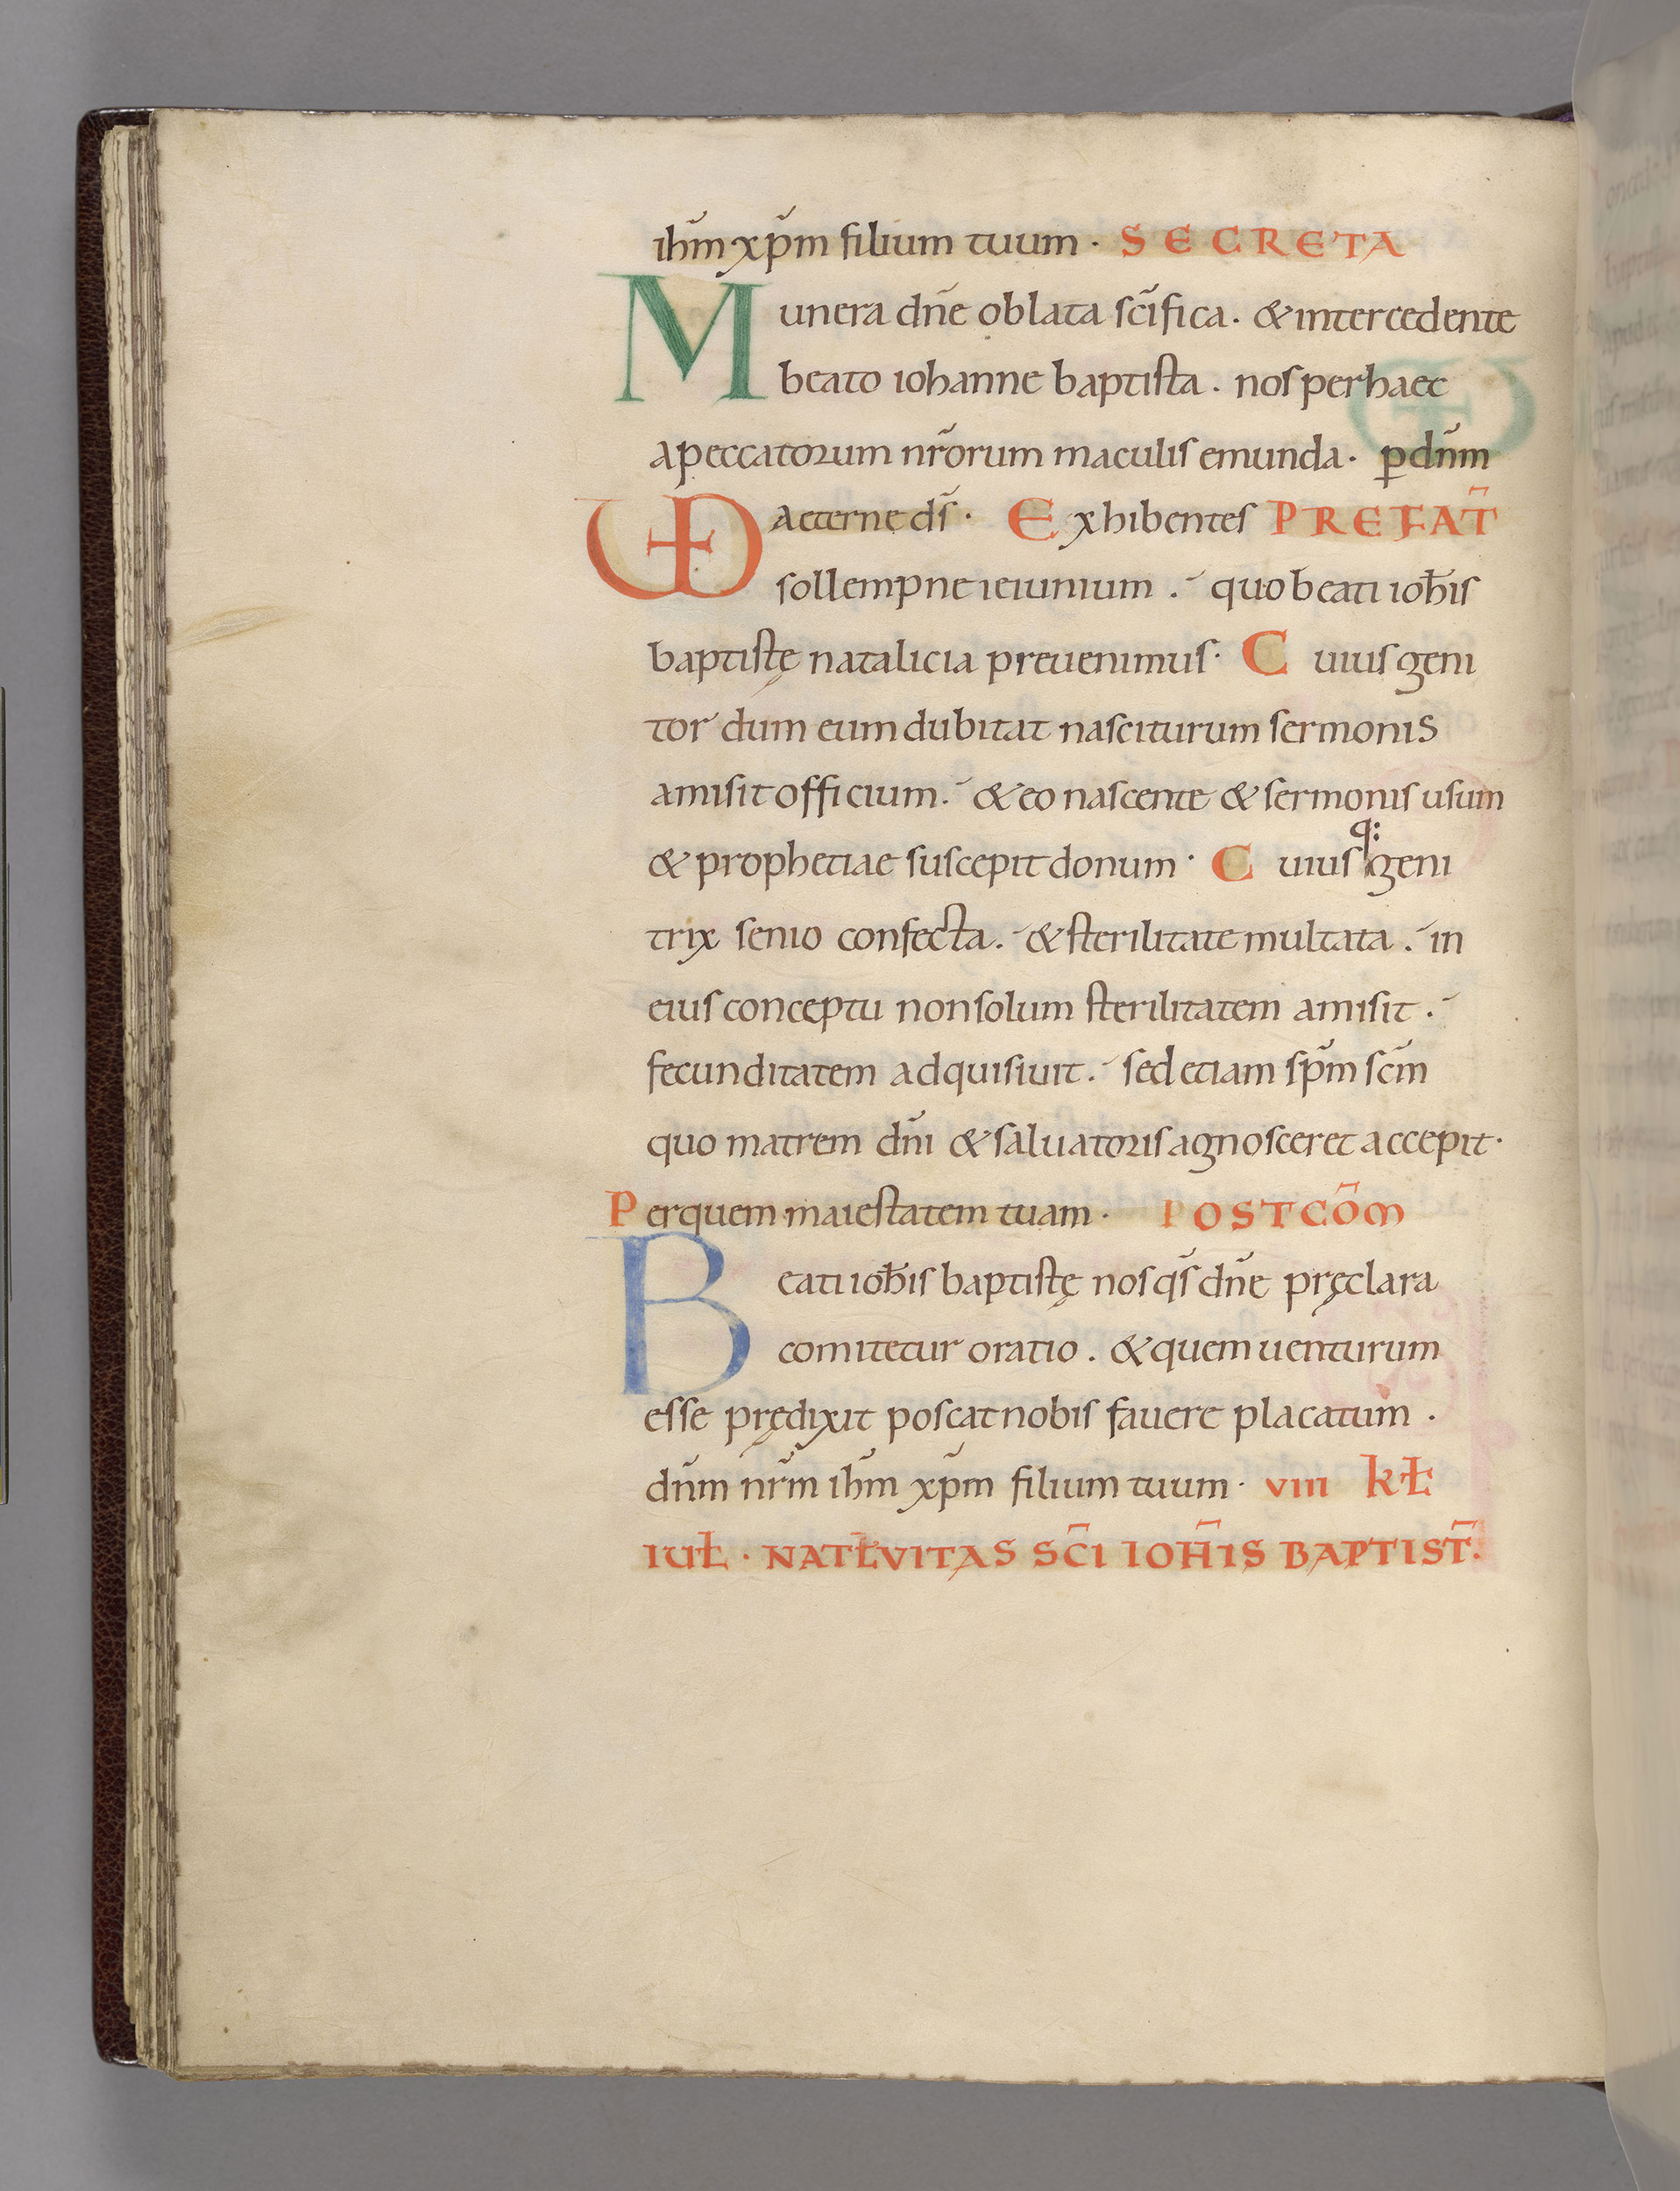 ihm̄ xp̄m filium tuum · SECRETA
Munera dn̄e oblata sc̄ifica. & intercedente
beato iohanne baptista. nos per haec
a peccatorum nr̄orum maculis emunda. ꝑ dn̄m
VD aeterne ds̄ · Exhibentes PREFAT̄
sollempne ieiunium. quo beati ioh̄is
baptistę natalicia preuenimus. Cuius geni
tor dum eum dubitat nasciturum sermonis
amisit officium. & eo nascente & sermonis usum
& prophetiae suscepit donum · Cuius q: geni
trix senio confecta. & sterilitate multata. in
eius conceptu non solum sterilitatem amisit.
fecunditatem adquisiuit. sed etiam sp̄m sc̄m
quo matrem dn̄i & saluatoris agnosceret accepit.
Per quem maiestatem tuam · POSTCOM̄
Beati ioh̄is baptistę nos qs̄ dn̄e pręclara
comitetur oratio. & quem uenturum
esse prędixit poscat nobis fauere placatum.
dn̄m nr̄m ihm̄ xp̄m filium tuum · VIII kł
IUŁ · NATIVITAS SC̄I IOH̄IS BAPTIST̄.